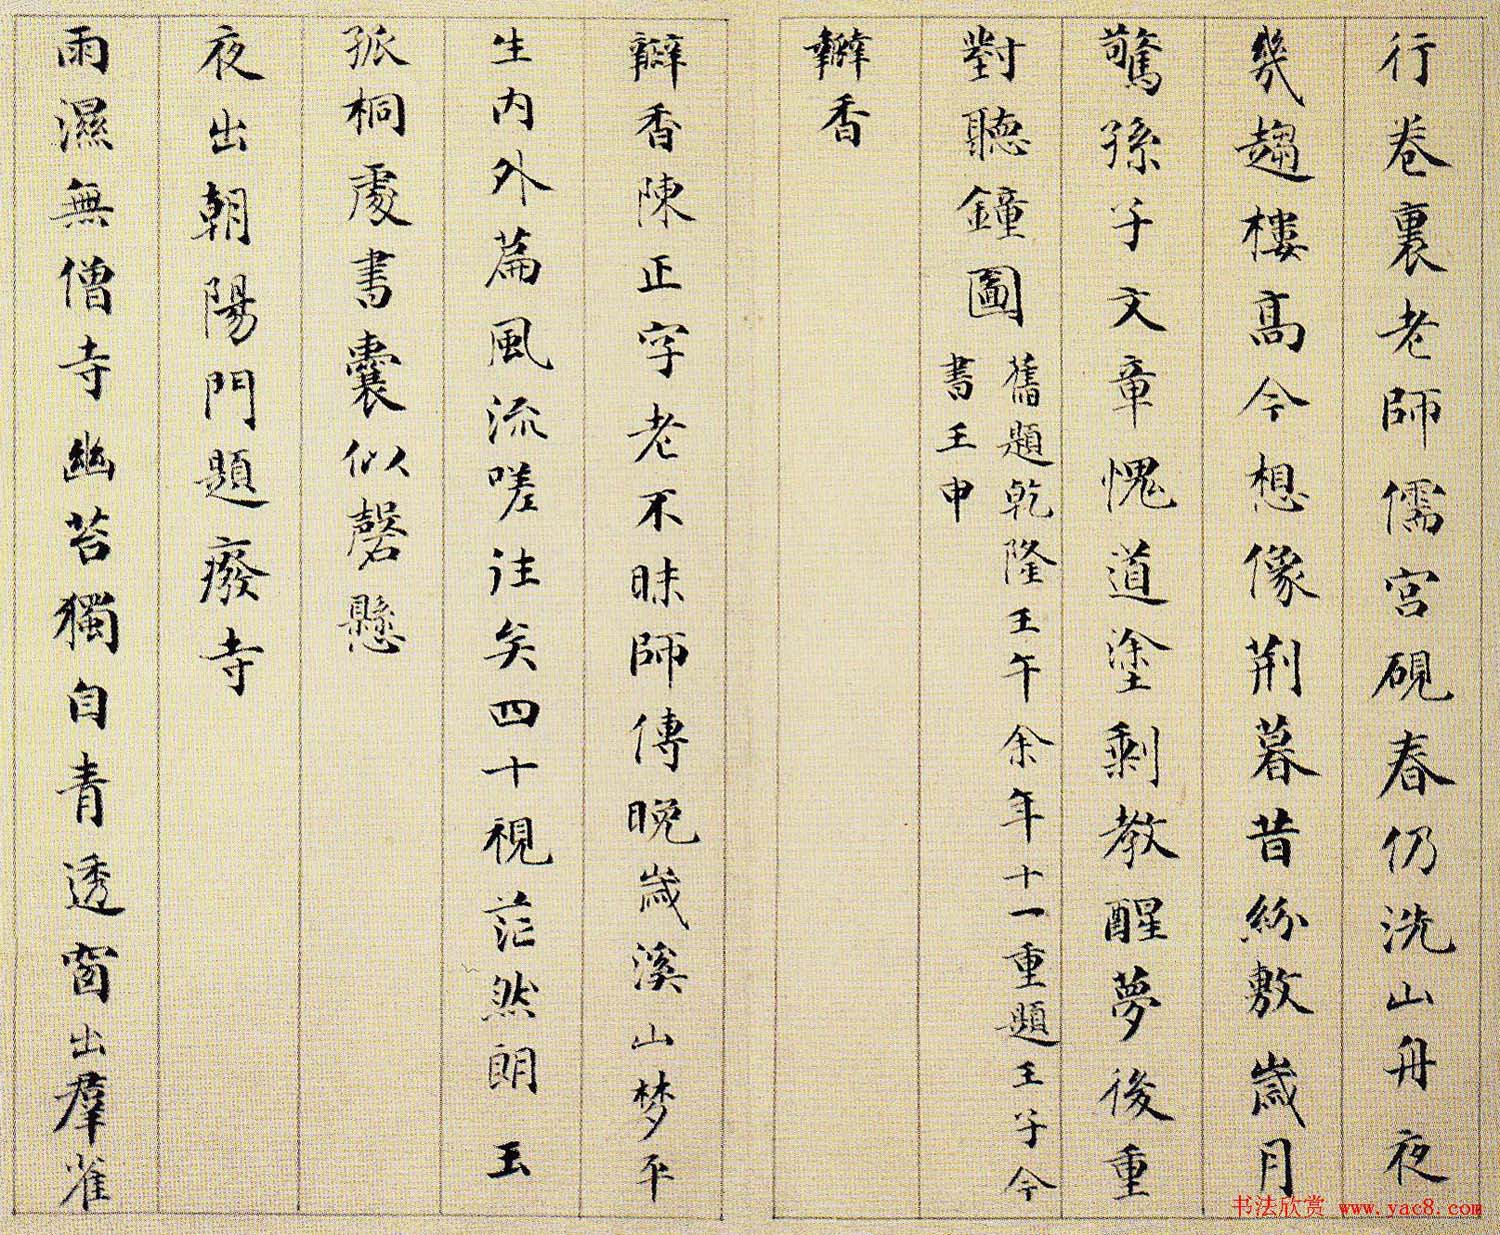 行卷裏老師儒宮硯春仍洗山舟夜
幾趨樓高今想像荆暮昔紛敷歲月
驚孫子文章愧道塗剩教醒夢後重
對聽鐘圖
舊題乾隆壬午余年十一重題壬子今
書壬申
瓣香
瓣香陳正字老不昧師傳晚歲溪山梦平
生内外篇風流嗟往矣四十視茫然朗玉
孤桐處書囊似磬懸
夜出朝陽門題廢寺
雨濕無僧寺幽苔獨自青透窗出羣雀
书法欣赏 www.yac8.com